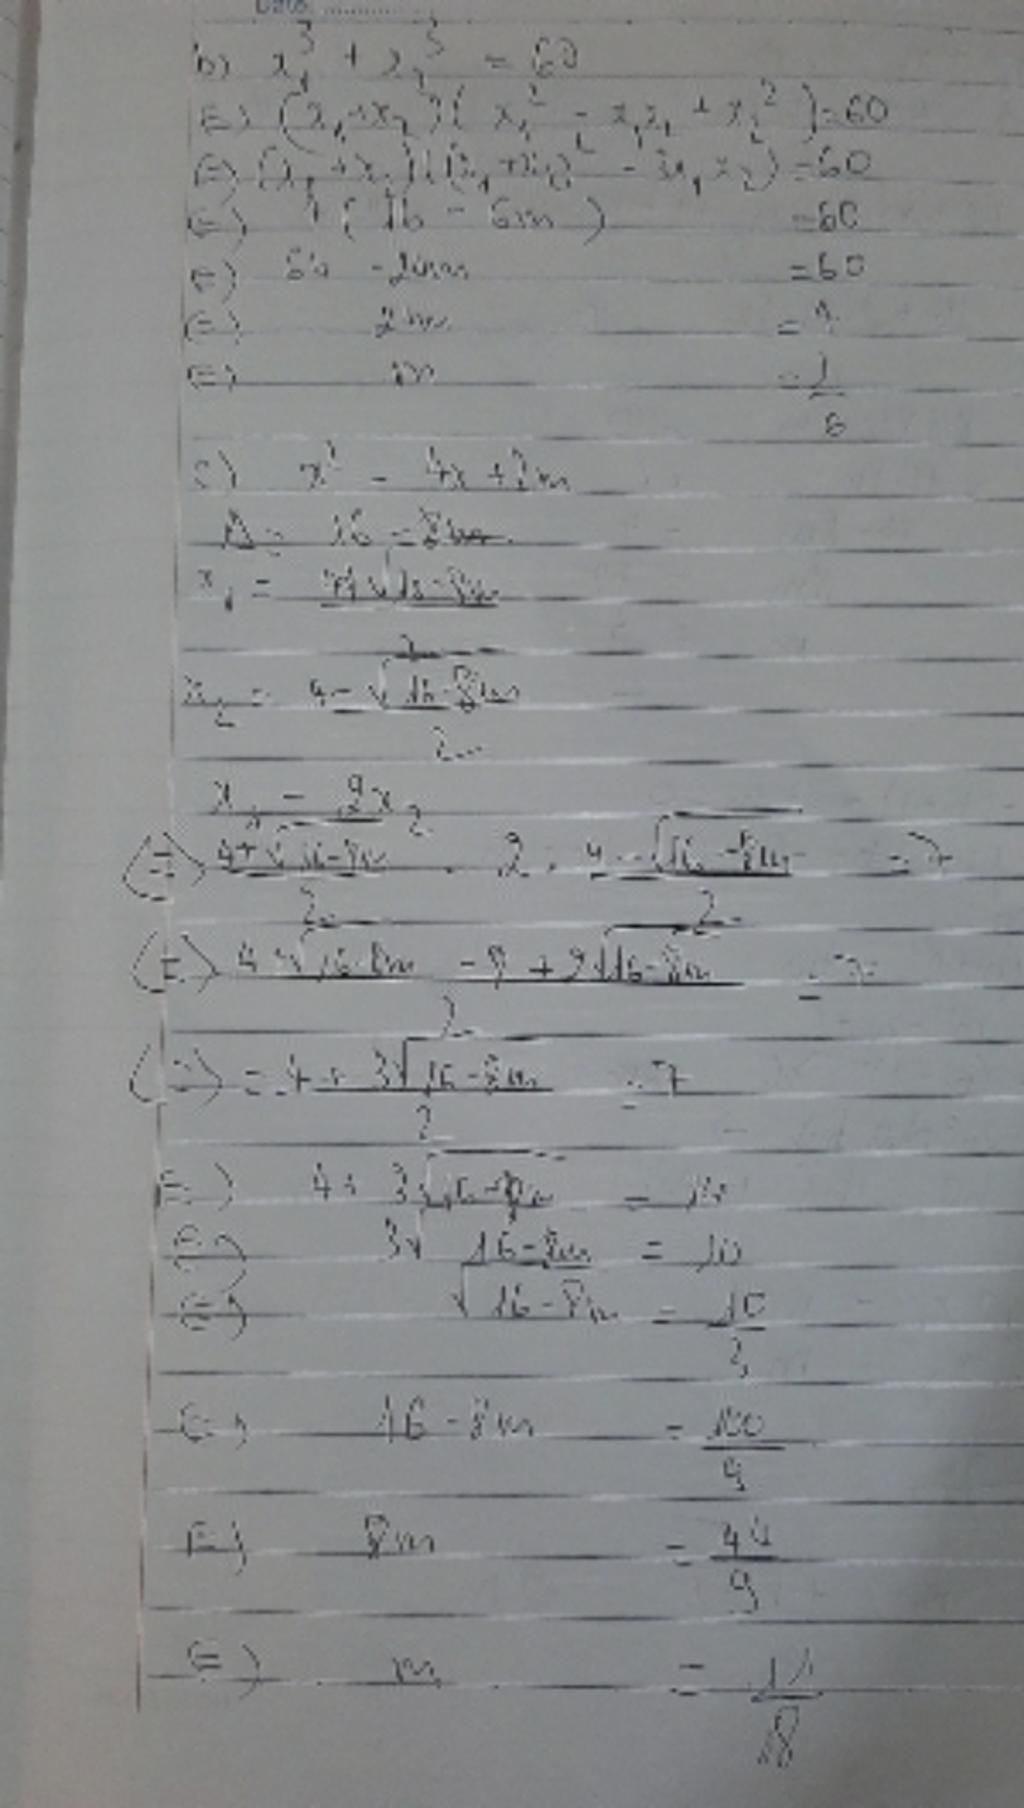 Date:
b) x₁³ + x₂³ = 60
⇔ (x₁+x₂)(x₁² - x₁x₂ + x₂²) = 60
⇔ (x₁+x₂)((x₁+x₂)² - 3x₁x₂) = 60
⇔ 4(16 - 6m) = 60
⇔ 64 - 24m = 60
⇔ m = 1/6
c) x² - 4x + 2m
Δ = 16 - 8m
x₁ = (4+√16-8m)/2
x₂ = (4-√16-8m)/2
x₁ - 2x₂
⇔ (4+√16-8m)/2 - 2 . (4-√16-8m)/2 = 7
⇔ (4+√16-8m - 8 + 2√16-8m)/2 = 7
⇔ (-4 + 3√16-8m)/2 = 7
⇔ 3√16-8m = 10
⇔ √16-8m = 10/3
⇔ 16-8m = 100/9
⇔ 8m = 44/9
⇔ m = 11/18